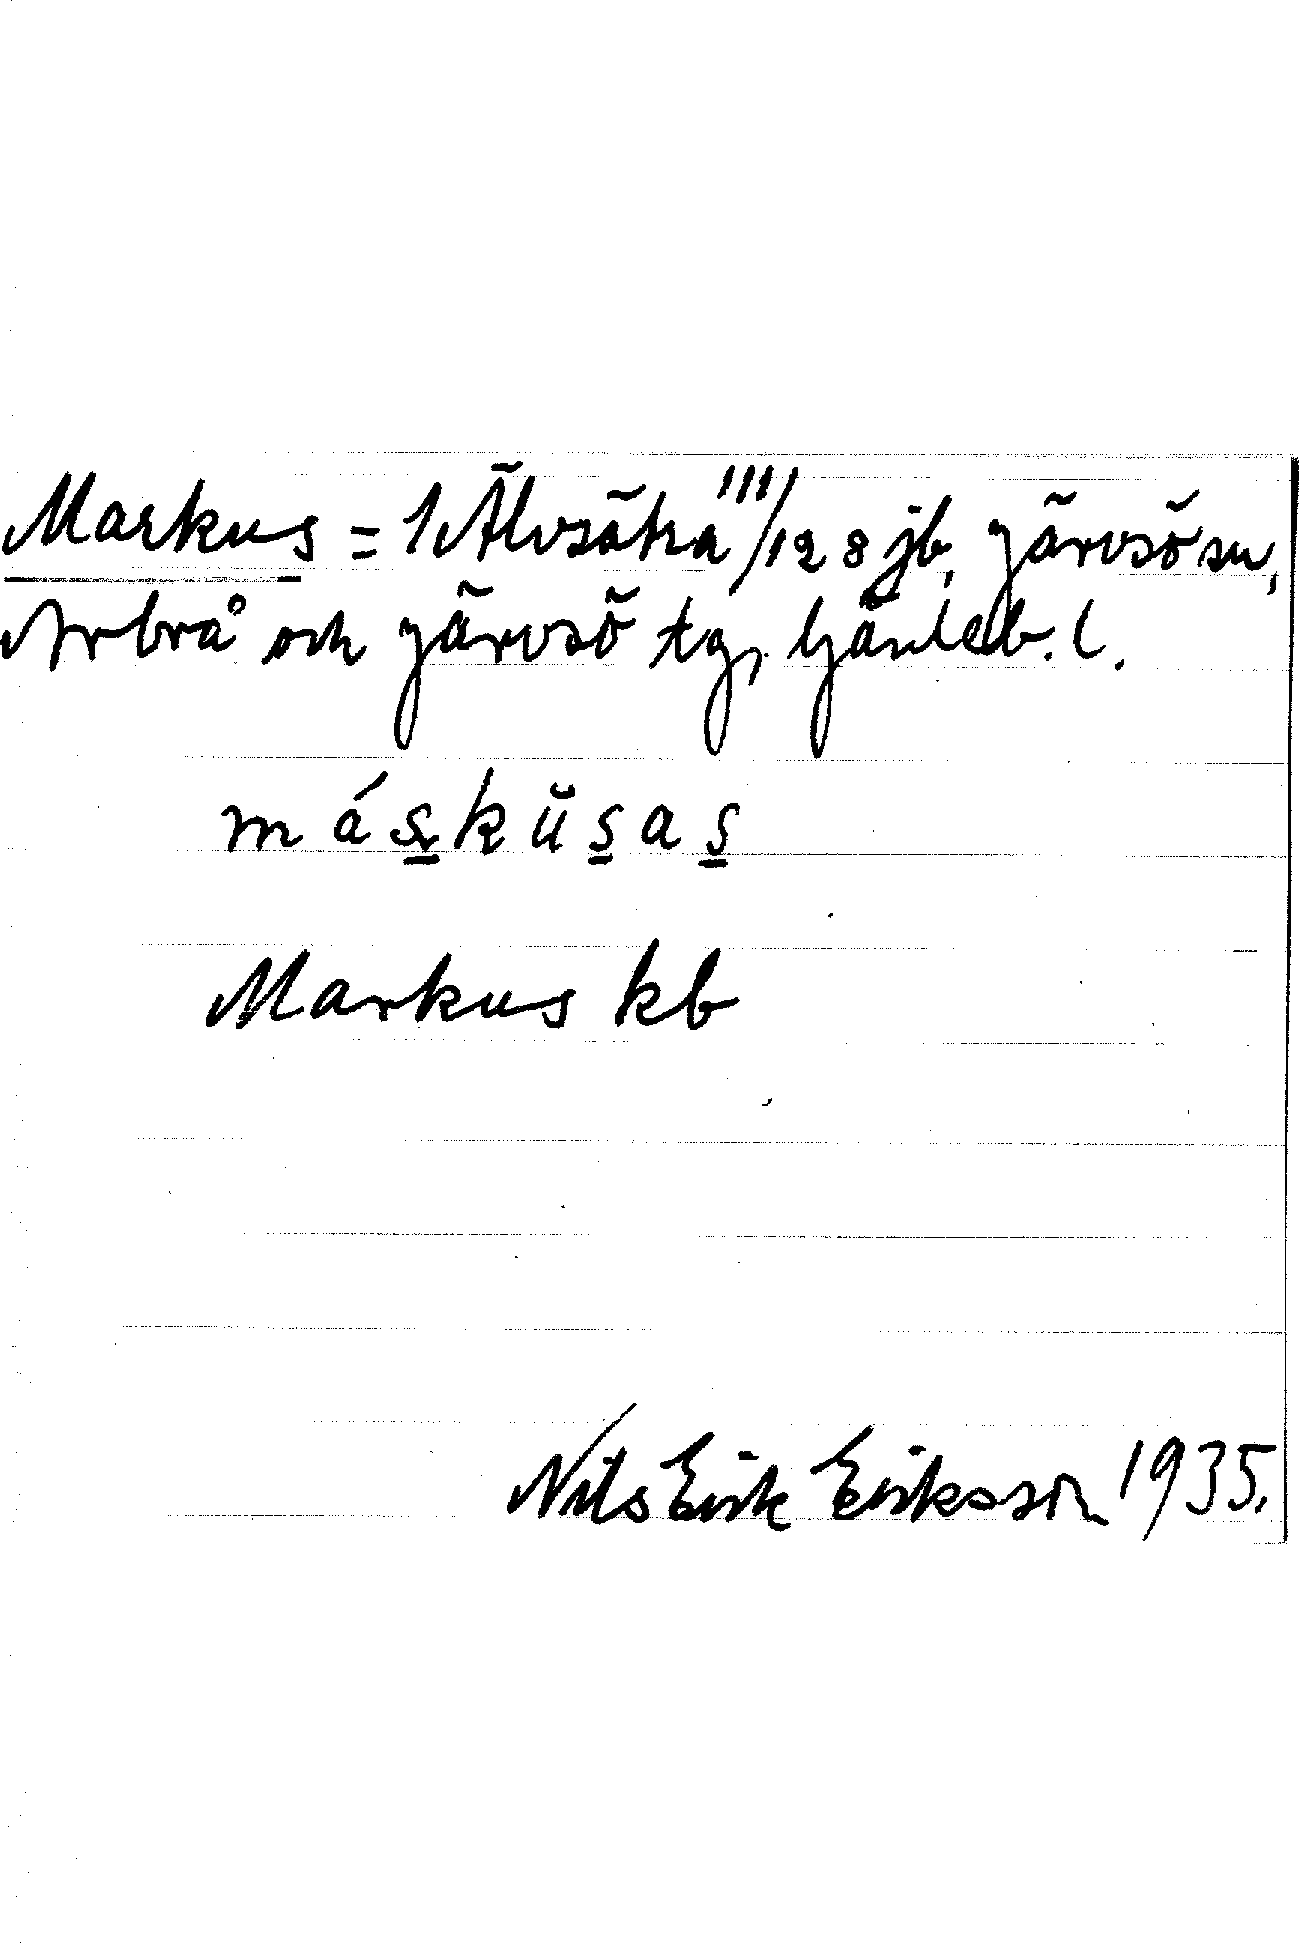 Markus = 1 Älvsätra III/128 jb, Järvsö sn,
Arbrå och Järvsö tg, Gävleb. l.
máskŭsas
Markus kb
Nils Erik Eriksson 1935.